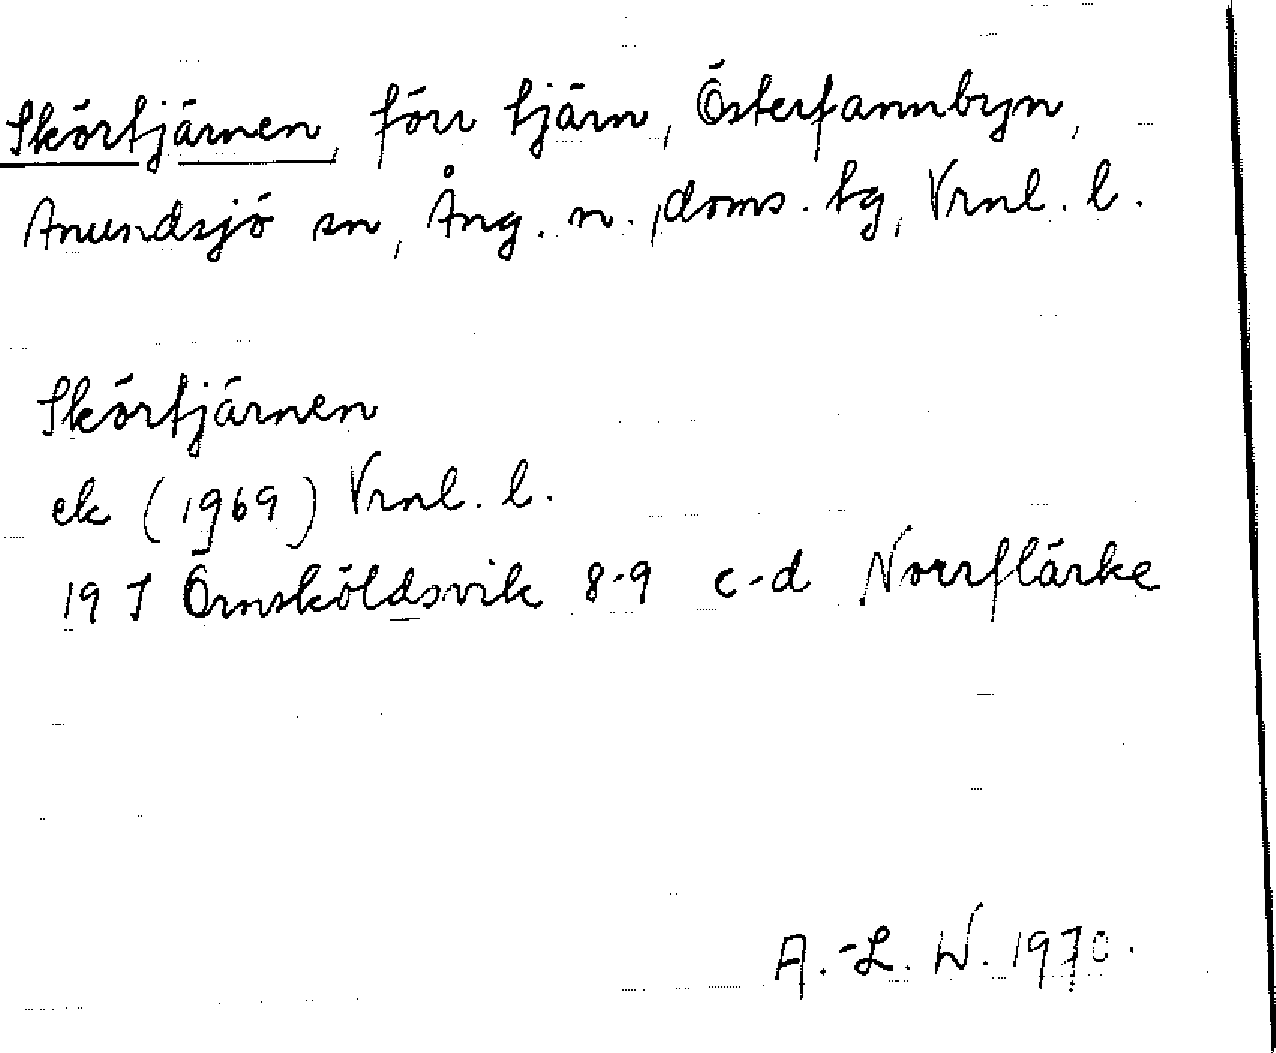 Skörtjärnen, förr tjärn, Österfannbyn,
Anundsjö sn, Ång. n., doms. tg, Vrnl. l.
Skörtjärnen
ek (1969) Vrnl. l.
19 J Örnsköldsvik 8-9 c-d Norrflärke
A.-L. W. 1970.